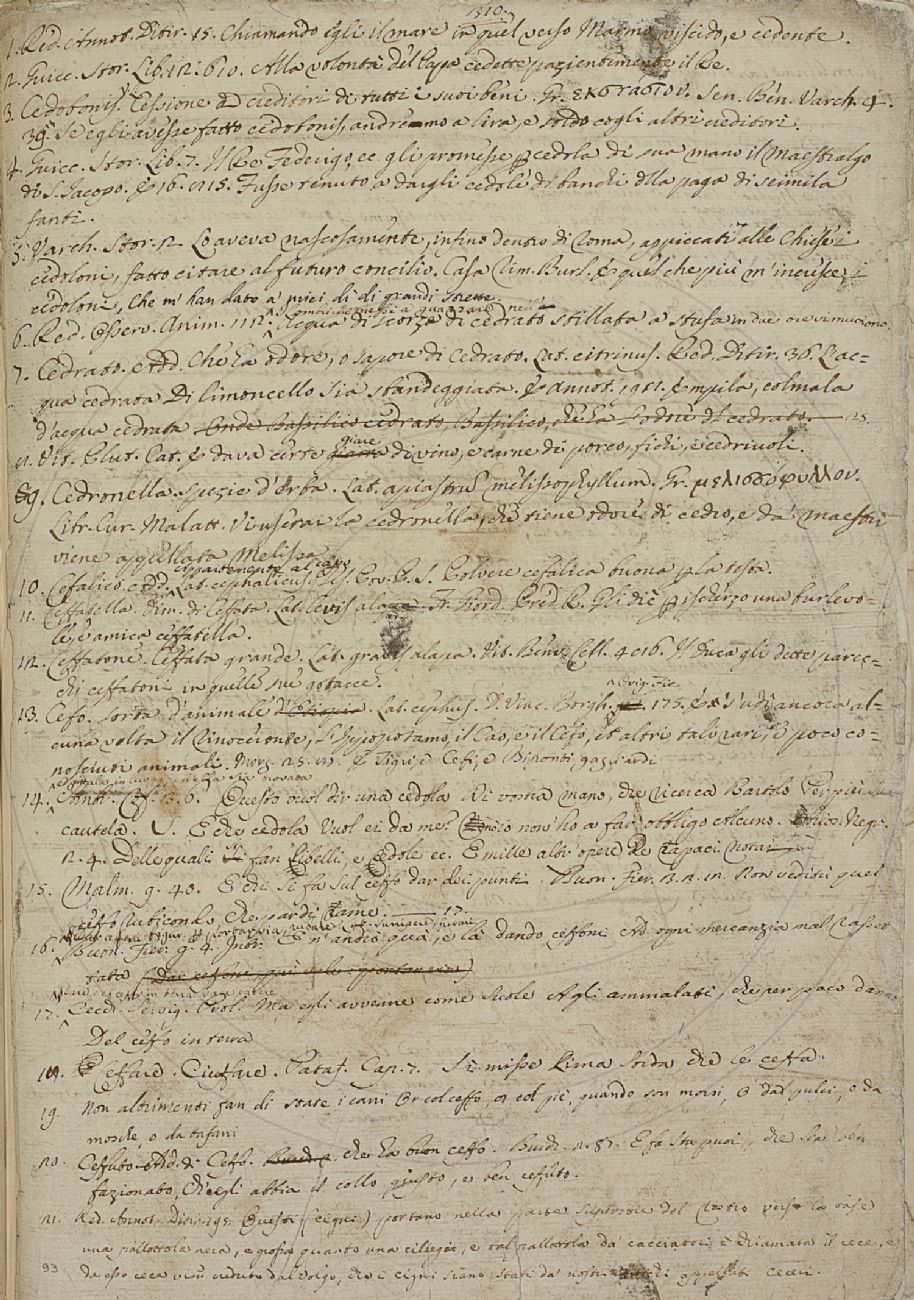 1310.
1. Red. Annot. Ditir. 15. Chiamando egli il mare in quel verso Marmo viscido, e cedente.
2. Guicc. Stor. Lib. 12. 610. Alla volontà del Papa cedette pazientemente il Re.
3. Cedobonis. Cessione a' creditori di tutti i suoi beni. Gr. Sen. Ben. Varch. 4.
39. Se egli avesse fatto cedobonis, andremmo a lira, e soldo cogli altri creditori.
4. Guicc. Stor. Lib. 7. Il Re Federigo, ec. gli promesse p cedola di sua mano il Maestralgo
di S. Jacopo. E 16. 215. Fusse tenuto a dargli cedole di banchi della paga di seimila
fanti.
5. Varch. Stor. 12. Lo aveva nascosamente, infino dentro di Roma, appiccati alle Chiese i
cedoloni, fatto citare al futuro concilio. Casa Rim. Burl. E quel che più m'incresce, i
cedoloni, Che m' han dato a' miei dì di grandi strette.
6. Red. Osserv. Anim. 112. Acqua di scorze di cedrato stillata a stufa in due ore vi morirono.
7. Cedrato. Add. Che ha odore, o sapore di cedrato. Lat. citrinus. Red. Ditir. 36. L'ac=
qua cedrata Di limoncello Sia sbandeggiata. E Annot. 191. Empila, colmala
d'acqua cedrata. Onde Bassilico cedrato, Bassilico, che ha l'odore di cedrato.
Vit. Plut. Cat. E dava certe giare di vino, e carne di porco, fichi, e cedriuoli.
9. Cedronella. Spezie d'Erba. Lat. apiastrum, melissophyllum. Gr. μελισσόφυλλον.
Libr. Cur. Malatt. Vi userai la cedronella, che tiene odore di cedro, e da' maestri
viene appellata Melissa.
appartenente al capo
10. Cefalico. Add. Lat. cephalicus. Polvere cefalica buona p la testa.
11. Ceffatella. Dim. di Ceffata. Lat. levis alapa. Fr. Giord. Pred. R. Gli diè p ischerzo una burlevo=
le, e amica ceffatella.
12. Ceffatone. Ceffata grande. Lat. gravis alapa. Vit. Benv. Cell. 406. Il Duca gli dette parec=
chi ceffatoni in quelle sue gotacce.
Orig. Fir.
13. Cefo. Sorta d'animale d'Etiopia. Lat. cephus. D. Vinc. Borgh. 175. E s'udì ancora al=
cuna volta il Rinoceronte, l'Hippopotamo, il Cao, e il Cefo, et altri tali rari, e poco co=
nosciuti animali. Morg. 25. E Tigri, e Cefi, e Bisonti, gagliardi
14. Cef. 3. 6. Questo vuol dir una cedola Di vostra mano, che ricerca Bartolo Per più su
cautela. V. E che cedola Vuol ei da me? non ho a far obbligo Alcuno.
2. 4. Delle quali fan libelli, e cedole ec. E mille altr' opere Rapaci Notai
15. Malm. 9. 40. E chi si fa sul ceffo dar dei punti. Buon. Fier. Non vedisti quel
ceffo rubicondo che par di rame. 17.
16. Buon. Fier. 9. 4. Intr. E n'andrò quà, e là dando ceffoni Ad ogni mercanzia mal rasset
tata
17. Cecch. Servig. Prol. Ma egli avvenne come suole Agli ammalati, che per poco danno
Del ceffo in terra
Ceffare. Ciuffare. Pataff. Cap. 7. Si misse Lima sorda che le ceffa.
19. Non altrimenti fan di state i cani Or col ceffo, or col piè, quando son morsi, O da' pulci, o da
mosche, o da tafani
20. Ceffuto. Add. Ceffo. che ha buon ceffo. Burch. 2. 87. E fa sti puoi, che sia ben
fazionato, Ch'egli abbia il collo giusto, e ben ceffuto.
21. Red. Annot. Ditir. 198. Questi (cigni) portano nella parte superiore del rostro verso la base
una pallottola nera, e grossa quanto una ciliegia, e tal pallottola da' cacciatori è chiamata il cece, e
da esso cece vien creduto dal volgo, che i cigni siano stati da' nostri appellati ceceri.
93